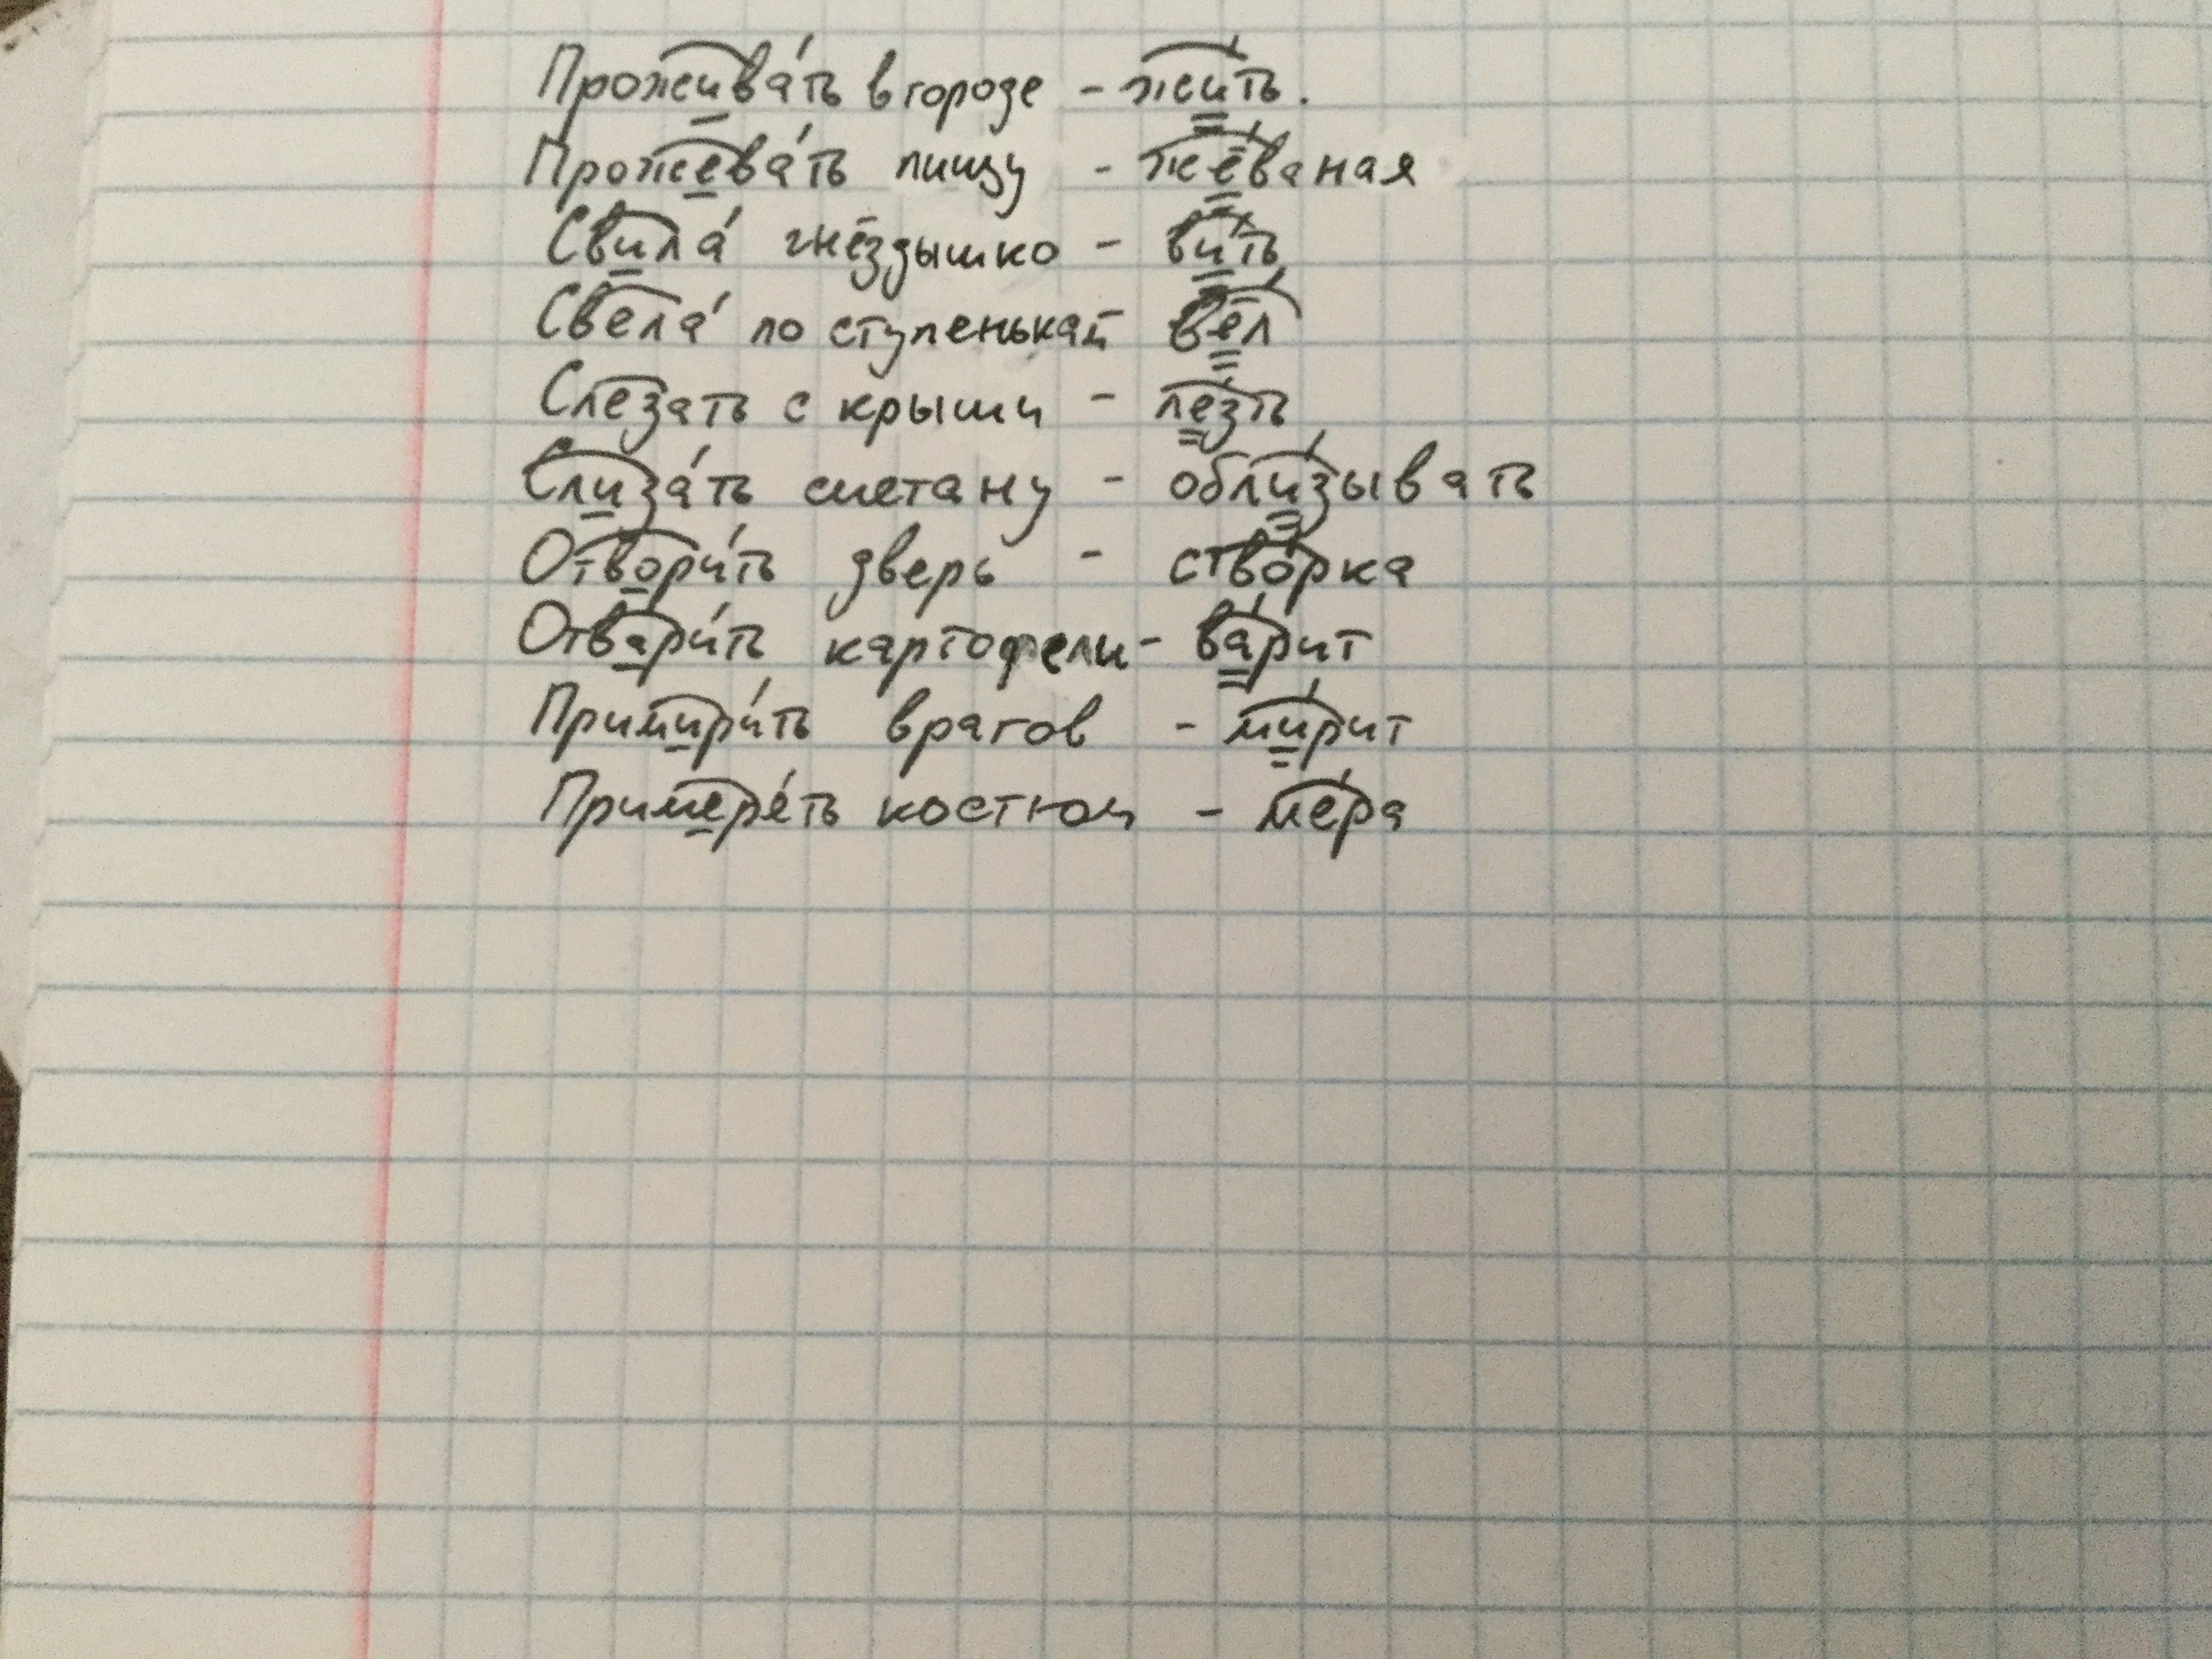 Проживать в городе - жить.
Прожевать пищу - жёваная
Свила гнёздышко - вить
Свела по ступенькам вёл
Слезать с крыши - лезть
Слизать сметану - облизывать
Отворить дверь - створка
Отварить картофели - варит
Примирить врагов - мирит
Примереть костюм - мера